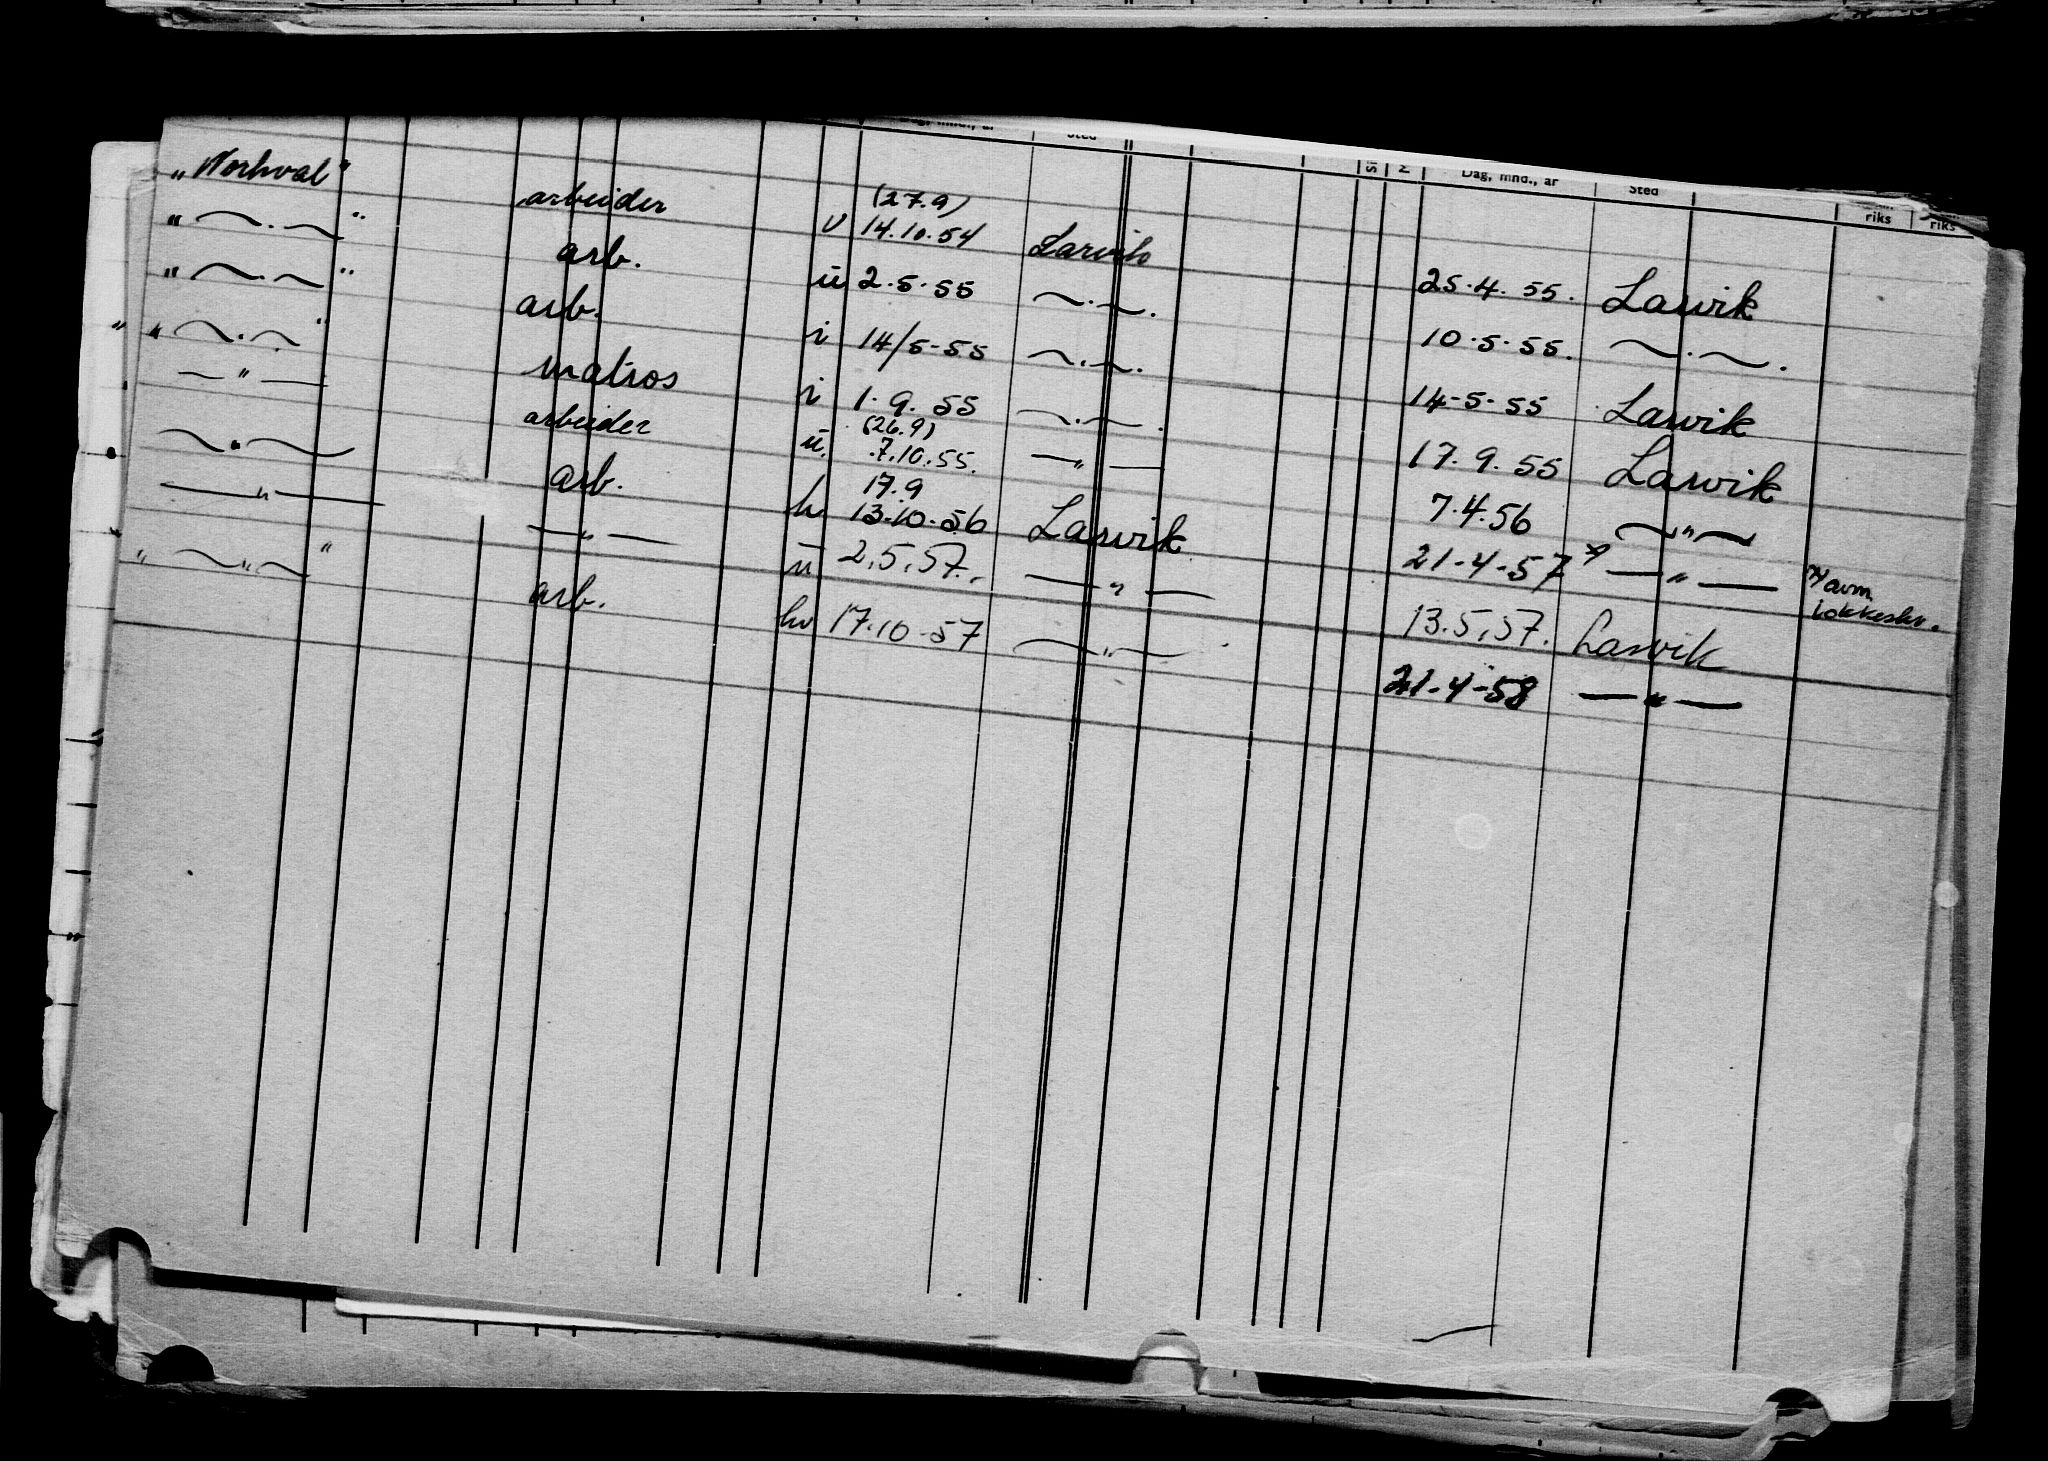 Dag, mnd., år Sted Dag, mnd., år Sted riks riks
„Norhval" arbeider v (27.9) 14.10.54 Larvik 25.4.55. Larvik
„ ~.~ " arb. u 2.5.55 ~.~. 10.5.55. ~.~.
„ ~.~ " arb. i 14/5-55 ~.~. 14-5-55 Larvik
„ ~.~ " matros i 1.9.55 ~.~. 17.9.55 Larvik
— " — arbeider u. (26.9) 7.10.55. — " — 7.4.56 ~ " ~
~ " ~ arb. h 17.9 13.10.56 Larvik 21-4-57 x) — " — x) avm.
— " — — " — u 2.5.57. — " — 13.5.57. Larvik
„ ~ " ~ " arb. hv 17.10-57 ~ " ~ 21-4-58 — " —